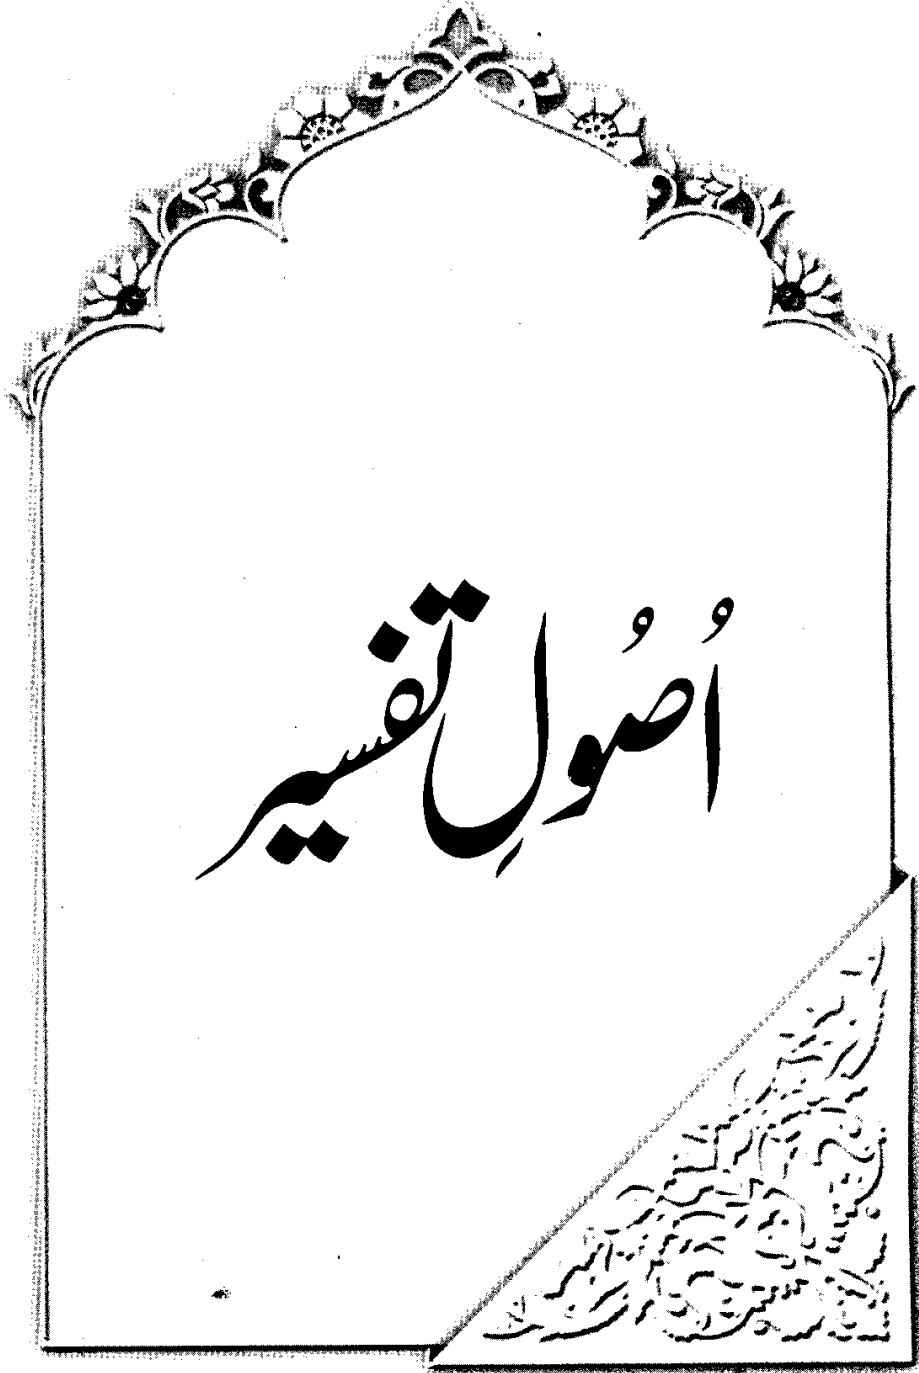 اُصُولِ تفسیر